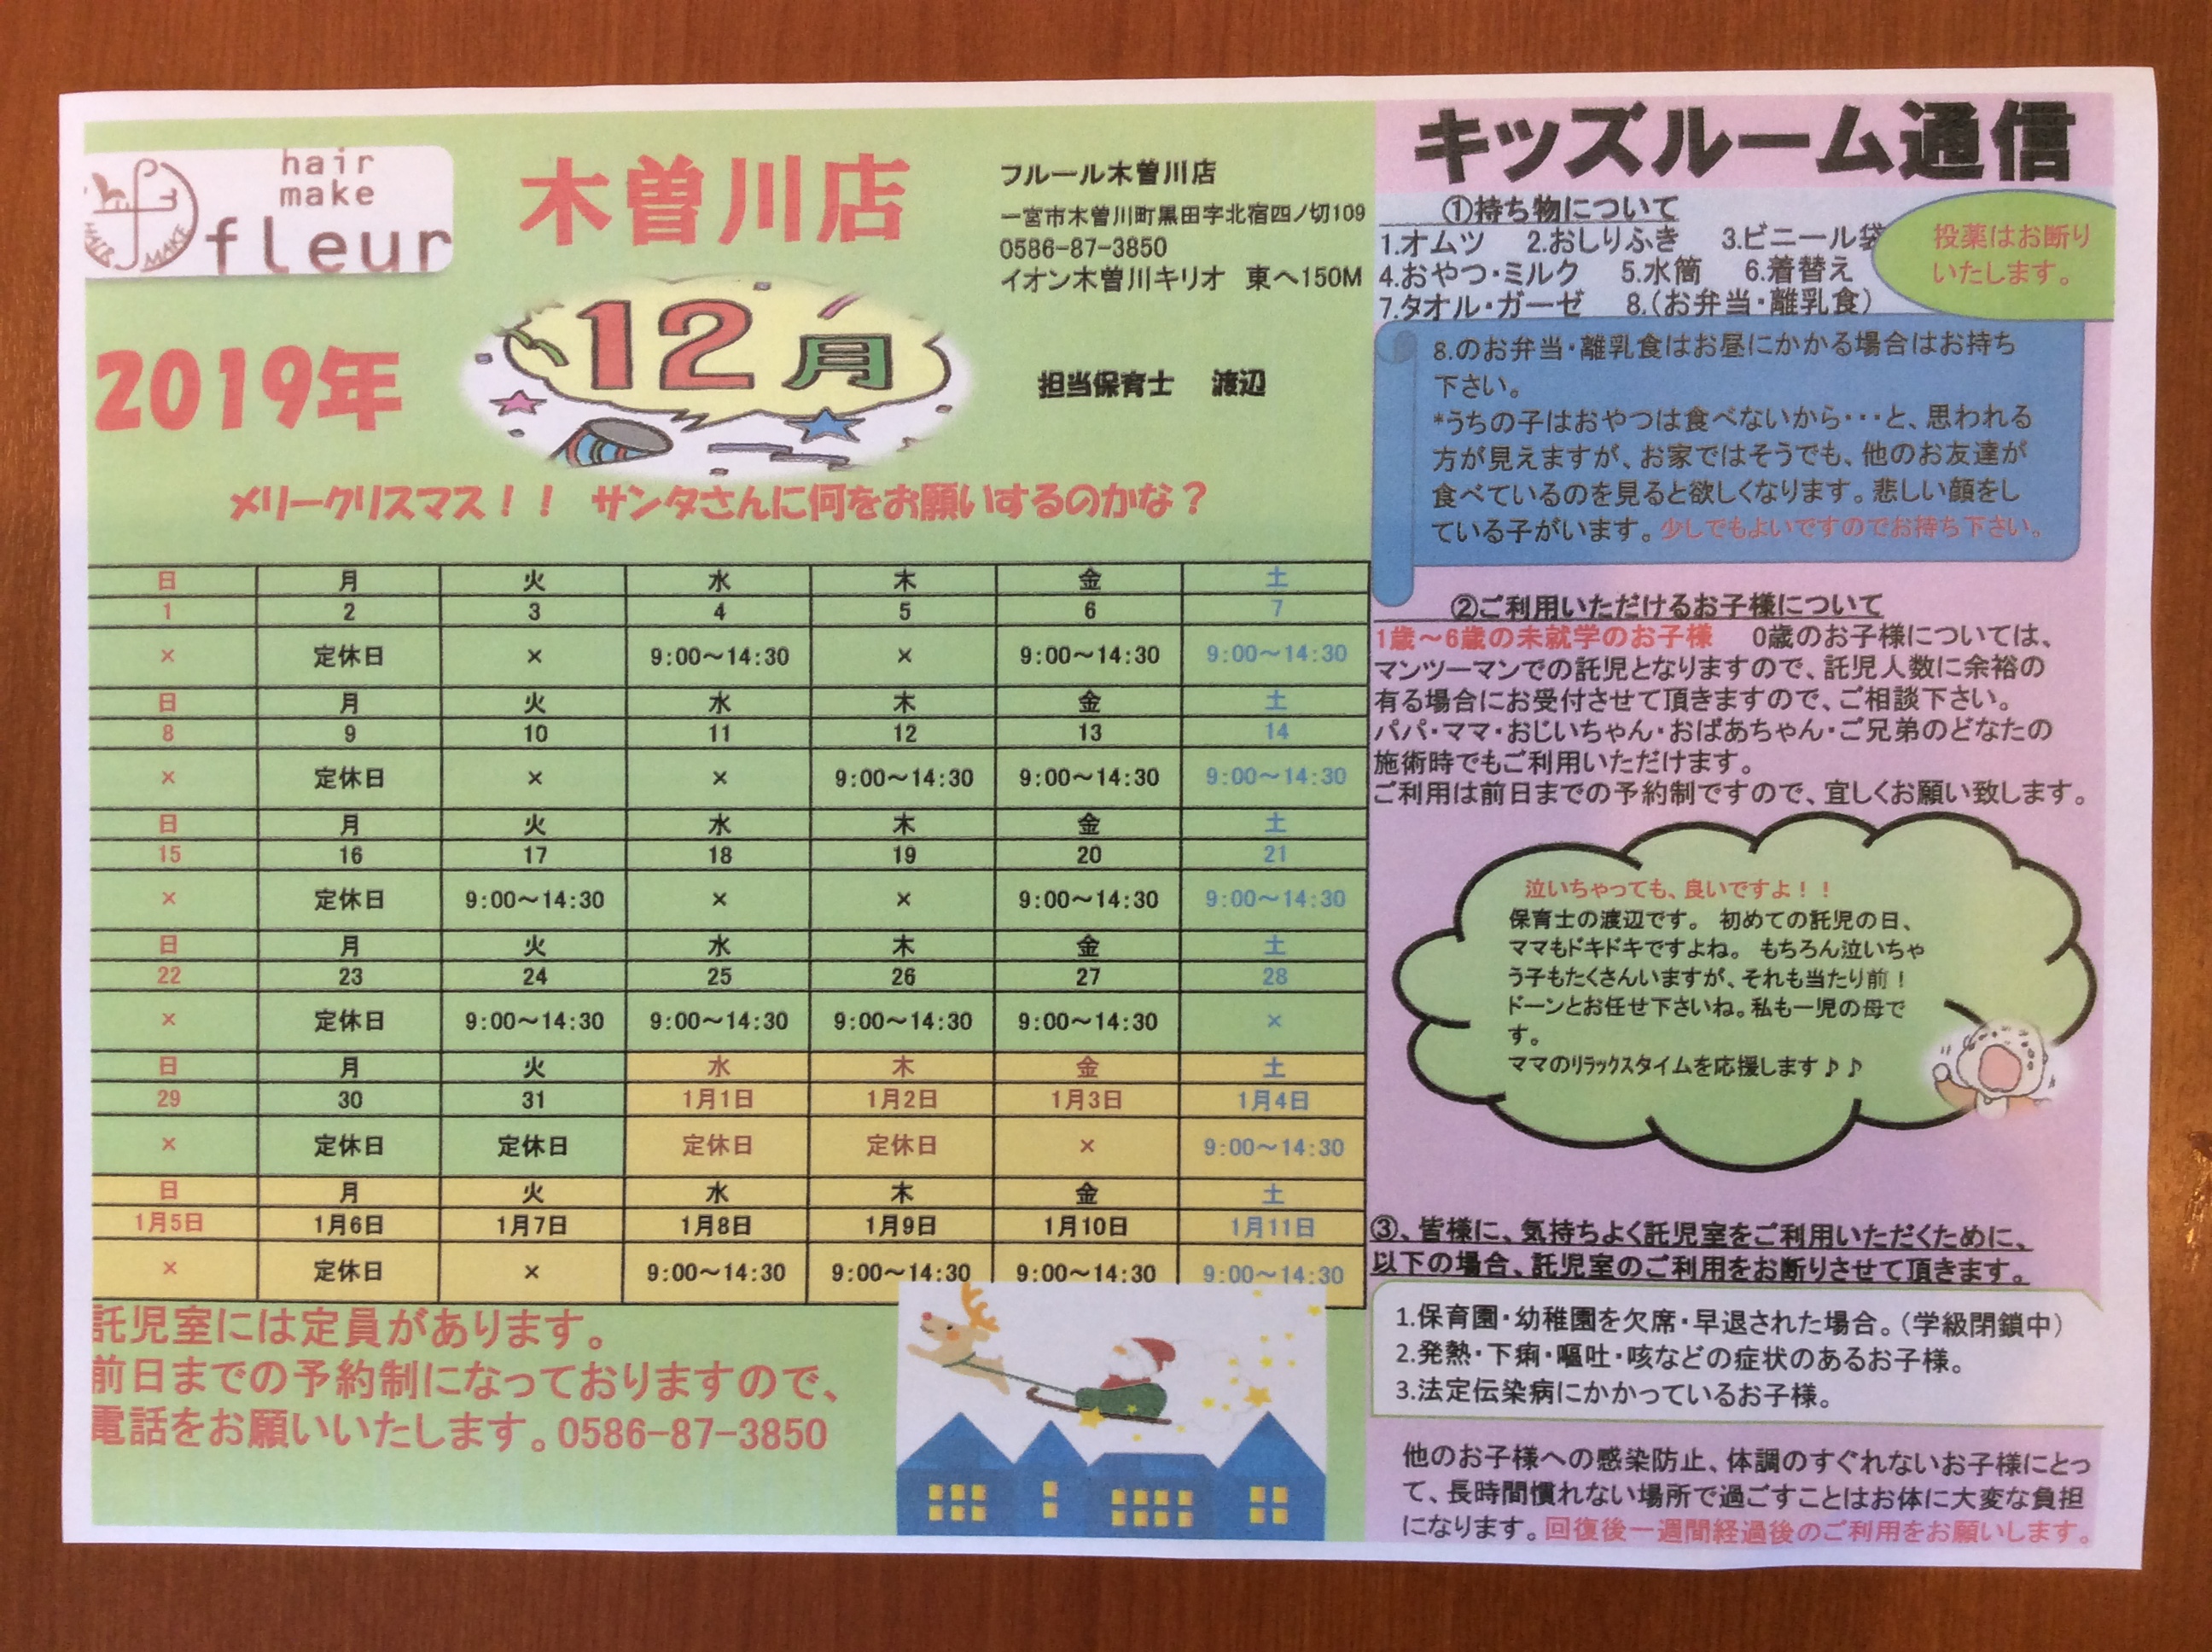 hair
make
fleur
HAIR MAKE
木曽川店
フルール木曽川店
一宮市木曽川町黒田字北宿四ノ切109
0586-87-3850
イオン木曽川キリオ 東へ150M
2019年
12月
担当保育士 渡辺
メリークリスマス！！ サンタさんに何をお願いするのかな？
日 月 火 水 木 金 土
1 2 3 4 5 6 7
× 定休日 × 9:00～14:30 × 9:00～14:30 9:00～14:30
日 月 火 水 木 金 土
8 9 10 11 12 13 14
× 定休日 × × 9:00～14:30 9:00～14:30 9:00～14:30
日 月 火 水 木 金 土
15 16 17 18 19 20 21
× 定休日 9:00～14:30 × × 9:00～14:30 9:00～14:30
日 月 火 水 木 金 土
22 23 24 25 26 27 28
× 定休日 9:00～14:30 9:00～14:30 9:00～14:30 9:00～14:30 ×
日 月 火 水 木 金 土
29 30 31 1月1日 1月2日 1月3日 1月4日
× 定休日 定休日 定休日 定休日 × 9:00～14:30
日 月 火 水 木 金 土
1月5日 1月6日 1月7日 1月8日 1月9日 1月10日 1月11日
× 定休日 × 9:00～14:30 9:00～14:30 9:00～14:30 9:00～14:30
託児室には定員があります。
前日までの予約制になっておりますので、
電話をお願いいたします。0586-87-3850
キッズルーム通信
①持ち物について
1.オムツ 2.おしりふき 3.ビニール袋
4.おやつ・ミルク 5.水筒 6.着替え
7.タオル・ガーゼ 8.(お弁当・離乳食)
投薬はお断り
いたします。
8.のお弁当・離乳食はお昼にかかる場合はお持ち
下さい。
*うちの子はおやつは食べないから・・・と、思われる
方が見えますが、お家ではそうでも、他のお友達が
食べているのを見ると欲しくなります。悲しい顔をし
ている子がいます。少しでもよいですのでお持ち下さい。
②ご利用いただけるお子様について
1歳～6歳の未就学のお子様 0歳のお子様については、
マンツーマンでの託児となりますので、託児人数に余裕の
有る場合にお受付させて頂きますので、ご相談下さい。
パパ・ママ・おじいちゃん・おばあちゃん・ご兄弟のどなたの
施術時でもご利用いただけます。
ご利用は前日までの予約制ですので、宜しくお願い致します。
泣いちゃっても、良いですよ！！
保育士の渡辺です。 初めての託児の日、
ママもドキドキですよね。 もちろん泣いちゃ
う子もたくさんいますが、それも当たり前！
ドーンとお任せ下さいね。私も一児の母で
す。
ママのリラックスタイムを応援します♪♪
③、皆様に、気持ちよく託児室をご利用いただくために、
以下の場合、託児室のご利用をお断りさせて頂きます。
1.保育園・幼稚園を欠席・早退された場合。(学級閉鎖中)
2.発熱・下痢・嘔吐・咳などの症状のあるお子様。
3.法定伝染病にかかっているお子様。
他のお子様への感染防止、体調のすぐれないお子様にとっ
て、長時間慣れない場所で過ごすことはお体に大変な負担
になります。回復後一週間経過後のご利用をお願いします。